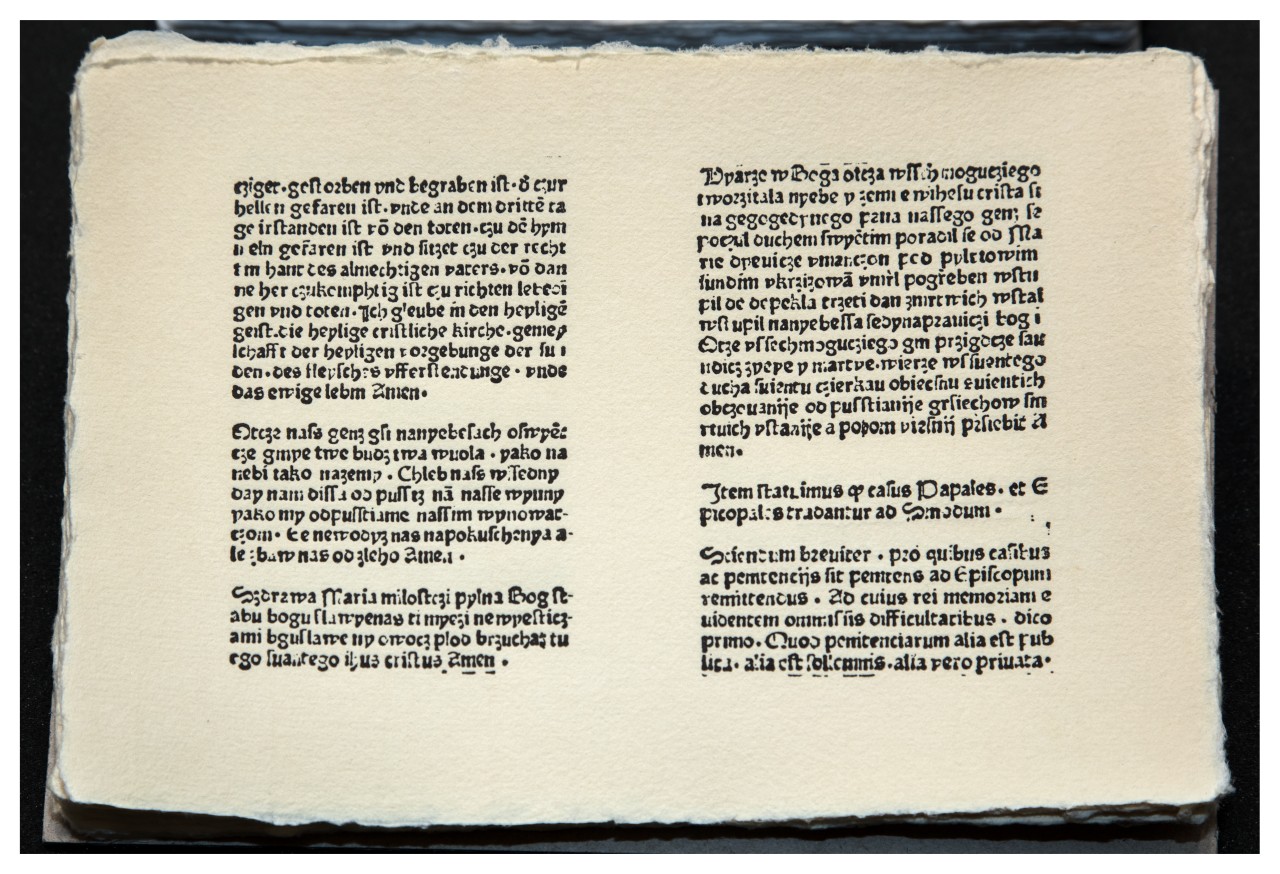 cziger·gestorben vnd begraben ist·d̄ czur
hellen gefaren ist·vnde an dem drittē ta
ge irstanden ist vō den toten·czu dē hym
n eln gefaren ist vnd sitzet czu der recht
hant des almechtigen vaters·vō dan
ne her czukomphtig ist czu richten
gen vnd toten·Ich gleube in den heyligē
geist·die heylige cristliche kirche·gemey
schafft der heyligen vorgebunge der su
den·des fleysches vfferstendunge·vnde
das ewige lebm Amen·
Otcze nass genz gsi nanyebesach oswyēc
cze gmye twe budz twa wuola·yako na
nebi tako nazemy·Chleb nass wssedny
day nam dissa od pustz nā nasse wyuny
yako my odpusstiame nassim wynowac-
czom·Ee newodyz nas napokuschenya a-
le zbaw nas od zleho Amen·
Szdrawa Maria milostczi pylna Bog st-
abu bogu slawyenas ti myezi newyesticz-
ami bguslawe ny owocz plod brzuchaz tu
ego suantego ihus cristus Amen·
Vyarze w Boga otcza wssechmoguczyego
tworzitala nyebe y zemi e wihesu crista si
na gegogedynego pana nassego genz se
poczal duchem swyētim poradil se od Ma
rie dyeuicze pod pyletowim
sundim vkrzizowā vmrl pogreben wstu
pil de depekla trzeti dan zmrtwich wstal
wstupil nanyebessa sedynaprauiczi bog i
Otze vssechmoguczyego gm przigdcze sau
ndicz zyeye y martve·wierze wssuentego
ducha suientu czierkau obiecsnu suientich
obczouanije od pusstianije grsiechow sm
rtuich vstanije a potom viesnij prsiebit A
men·
Item statuimus ꝙ casus Papales·et E
picopales tradantur ad Sinodum·
Sciendum breuiter·pro quibus casibus
ac penitencijs sit penitens ad Episcopum
remittendus·Ad cuius rei memoriam e
uidentem ommissis difficultatibus·dico
primo·Quod penitenciarum alia est pub
lica·alia est sollemnis·alia vero priuata·